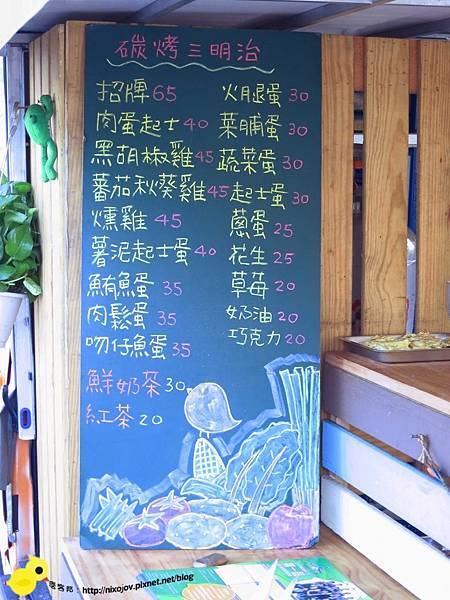 碳烤三明治
招牌 65
肉蛋起士 40
黑胡椒雞 45
蕃茄秋葵雞 45
燻雞 45
薯泥起士蛋 40
鮪魚蛋 35
肉鬆蛋 35
吻仔魚蛋 35
鮮奶茶 30
紅茶 20
火腿蛋 30
菜脯蛋 30
蔬菜蛋 30
起士蛋 30
蔥蛋 25
花生 25
草莓 20
奶油 20
巧克力 20
http://nixojov.pixnet.net/blog